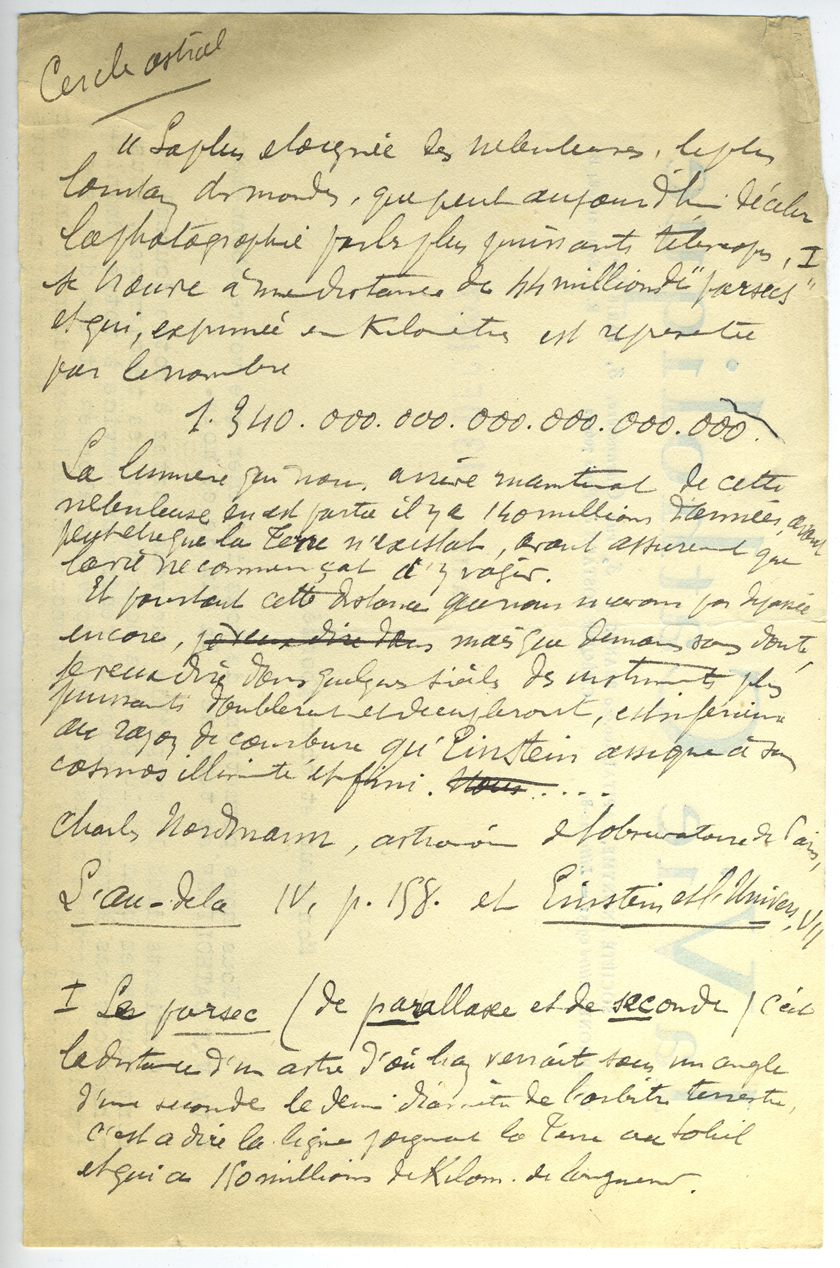 Cercle astral
"La plus éloignée des nébuleuses, le plus
lointain des mondes, que peut aujourd'hui déceler
la photographie par les plus puissants télescopes, I
se trouve à une distance de 44 millions de "parsecs"
et qui, exprimée en Kilomètres est représentée
par le nombre
1.340.000.000.000.000.000.000.
La lumière qui nous arrive maintenant de cette
nébuleuse en est partie il y a 140 millions d'années, avant
peut-être que la Terre n'existat, avant assurément que
la vie ne commençat à y vagir.
Et pourtant cette distance que nous n'avons pas dépassée
encore, je veux dire dans mais que demain sans doute,
je veux dire dans quelques siècles des instruments plus
puissants doubleront et décupleront, est inférieure
au rayon de courbure qu'Einstein assigne à son
cosmos illimité et fini. Nous.....
Charles Nordmann, astronome de l'observatoire de Paris,
L'au-dela IV, p. 158. et Einstein et l'Univers, VII
I Le parsec (de parallaxe et de seconde) c'est
la distance d'un astre d'où l'on verrait sous un angle
d'une seconde le demi diamètre de l'orbite terrestre,
c'est a dire la ligne joignant la Terre au Soleil
et qui a 150 millions de Kilom. de longueur.
la Vie Catholique